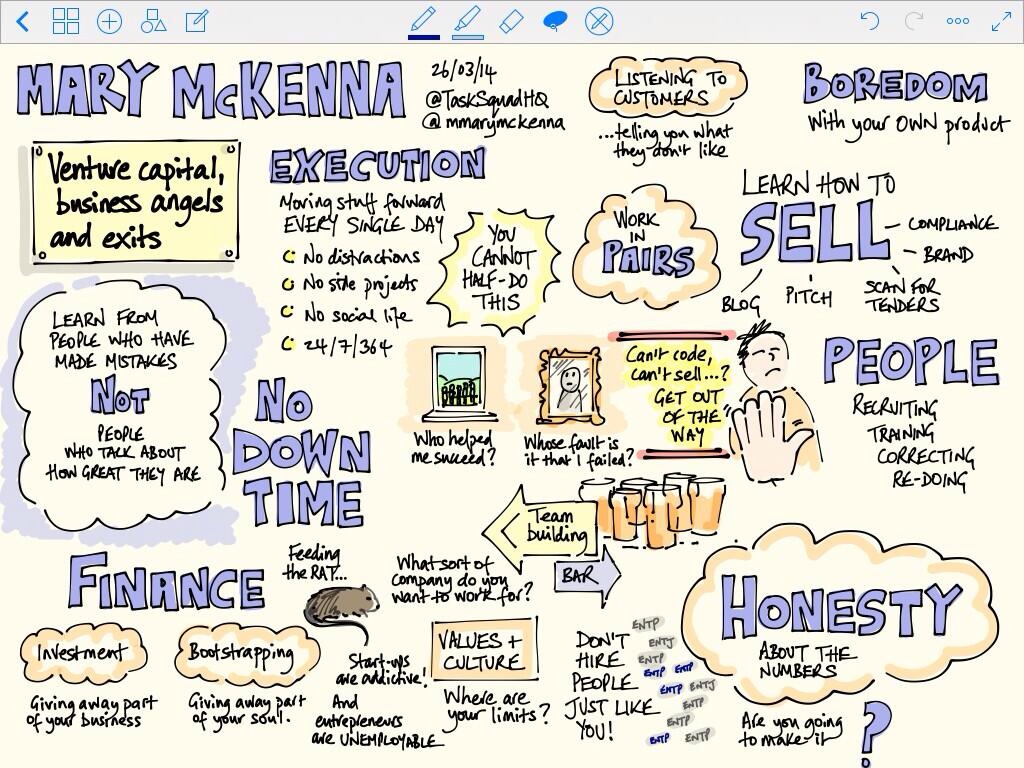 MARY McKENNA
26/03/14
@TaskSquadHQ
@mmarymckenna
LISTENING TO
CUSTOMERS
...telling you what
they don't like
BOREDOM
With your OWN product
Venture capital,
business angels
and exits
EXECUTION
Moving stuff forward
EVERY SINGLE DAY
No distractions
No side projects
No social life
24/7/364
YOU
CANNOT
HALF-DO
THIS
WORK
IN
PAIRS
LEARN HOW TO
SELL
COMPLIANCE
BRAND
SCAN FOR
TENDERS
PITCH
BLOG
LEARN FROM
PEOPLE WHO HAVE
MADE MISTAKES
NOT
PEOPLE
WHO TALK ABOUT
HOW GREAT THEY ARE
NO
DOWN
TIME
Who helped
me succeed?
Whose fault is
it that I failed?
Can't code,
can't sell...?
GET OUT
OF THE
WAY
PEOPLE
RECRUITING
TRAINING
CORRECTING
RE-DOING
Team
building
BAR
FINANCE
Feeding
the RAT...
Investment
Giving away part
of your business
Bootstrapping
Giving away part
of your soul.
Start-ups
are addictive!
And
entrepreneurs
are UNEMPLOYABLE
What sort of
company do you
want to work for?
VALUES +
CULTURE
Where are
your limits?
DON'T
HIRE
PEOPLE
JUST LIKE
YOU!
ENTP
ENTJ
ENTP
ENTP ENTP
ENTP ENTJ
ENTP
ENTP
ENTP ENTP
HONESTY
ABOUT THE
NUMBERS
Are you going
to make it
?